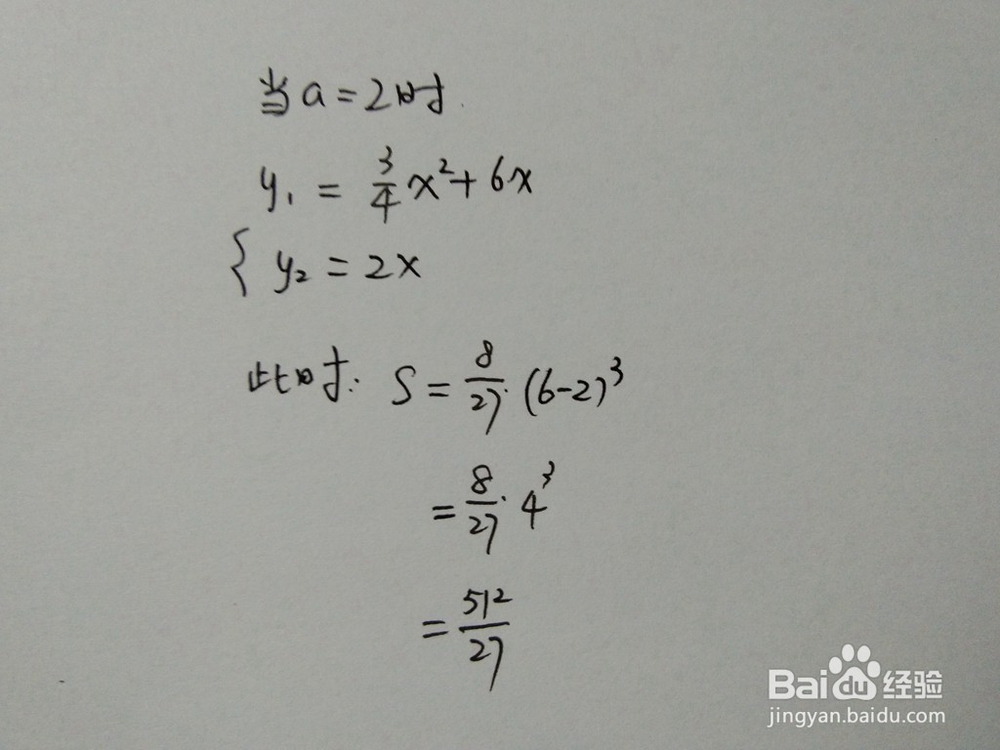 当a=2时.
y₁ = 3/4 x²+6x
{ y₂ = 2x
此时: S = 8/27·(6-2)³
= 8/27·4³
= 512/27
Bai du 经验
jingyan.baidu.com